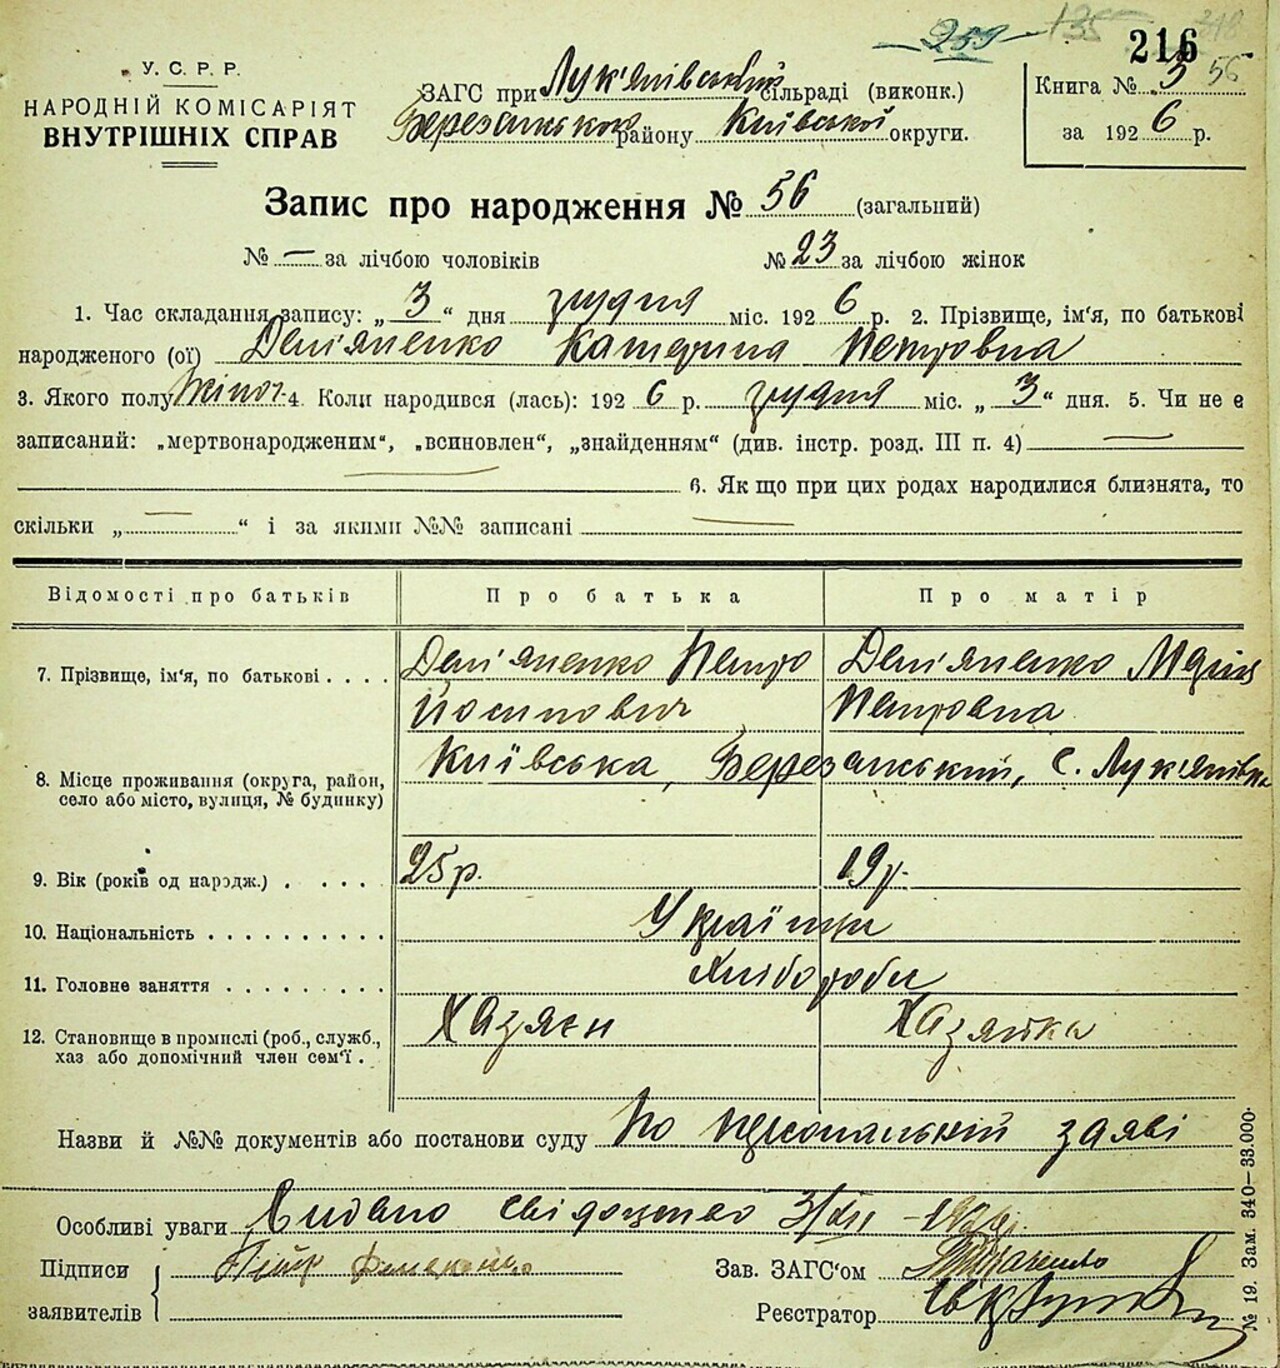 259 135 218
216
У. С. Р. Р.
НАРОДНІЙ КОМІСАРІЯТ
ВНУТРІШНІХ СПРАВ
ЗАГС при Лук'янівський сільраді (виконк.)
Березанського району Київської округи.
Книга № 3 56
за 1926 р.
Запис про народження № 56 (загальний)
№ — за лічбою чоловіків № 23 за лічбою жінок
1. Час складання запису: „ 3 “ дня грудня міс. 1926 р. 2. Прізвище, ім'я, по батькові
народженого (ої) Дем'яненко Катерина Петровна
3. Якого полу жіноч. 4. Коли народився (лась): 1926 р. грудня міс. „ 3 “ дня. 5. Чи не є
записаний: „мертвонародженим“, „всиновлен“, „знайденням“ (див. інстр. розд. III п. 4) —
— 6. Як що при цих родах народилися близнята, то
скільки „ — “ і за якими №№ записані —
Відомості про батьків Про батька Про матір
7. Прізвище, ім'я, по батькові . . . . Дем'яненко Петро Дем'яненко Марія
Йосипович Петровна
8. Місце проживання (округа, район, Київська, Березанський, с. Лук'янівка
село або місто, вулиця, № будинку)
9. Вік (років од народж.) . . . . . 25 р. 19 р.
10. Національність . . . . . . . . . . Українці
11. Головне заняття . . . . . . . . . Хлібороби
12. Становище в промислі (роб., служб., Хазяєн Хазяйка
хаз або допомічний член сем'ї .
Назви й №№ документів або постанови суду По персональній заяві
Особливі уваги Видано свідоцтво 3/XII - 1926 р.
Підписи Петр Демяненко Зав. ЗАГС'ом
заявителів Реєстратор
№ 19. Зам. 340—33.000.